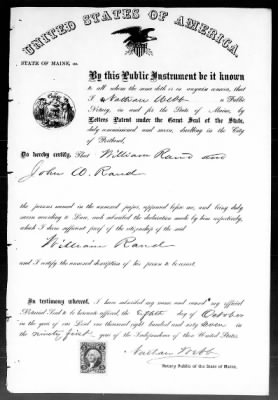 UNITED STATES OF AMERICA.
STATE OF MAINE, ss.
By this Public Instrument be it known
to all whom the same doth or may in anywise concern, that
I Nathan Webb a Public
Notary, in and for the State of Maine, by
Letters Patent under the Great Seal of the State,
duly commissioned and sworn, dwelling in the City
of Portland,
Do hereby certify, That William Rand and
John W. Rand
the persons named in the annexed papers, appeared before me, and being duly
sworn according to Law, each subscribed the declaration made by him respectively,
which I deem sufficient proof of the citizenship of the said
William Rand
and I certify the annexed description of his person to be correct.
In testimony whereof, I have subscribed my name and caused my official
Notarial Seal to be hereunto affixed, the Eighth day of October
in the year of our Lord one thousand eight hundred and sixty Seven in
the ninety first year of the Independence of these United States.
Nathan Webb
Notary Public of the State of Maine.